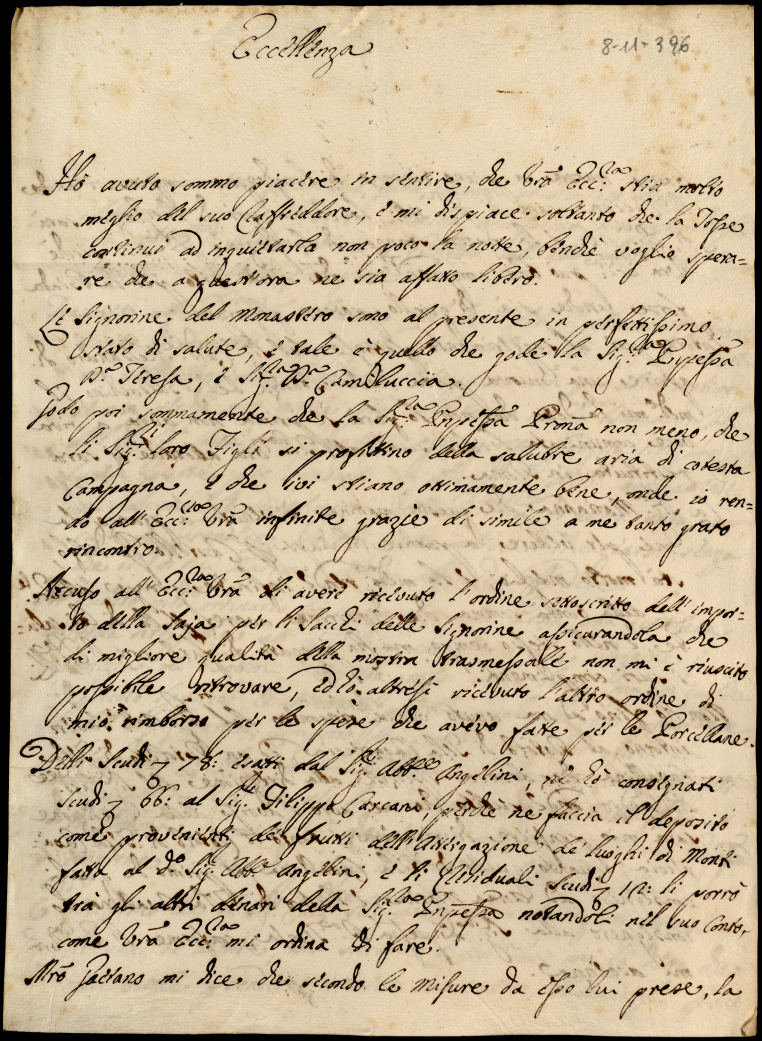 Eccellenza
8-11-396
Hò avuto sommo piacere in sentire, che Vrã Ecc:za stia molto
meglio del suo Raffreddore, e mi dispiace soltanto che la Tosse
continui ad inquietarla non poco la notte, benchè voglio spera=
re che a quest'ora ne sia affatto libero.
Le Signorine del Monastero sono al presente in perfettissimo
stato di salute, e tale è quello che gode la Sig:ra Pnpessa
D.a Teresa, e Sig:ra D.a Camilluccia.
Godo poi sommamente che la Sig:ra Pnpessa Pronã non meno, che
li Sig:ri loro Figli si profittino della salubre aria di cotesta
Campagna, e che ivi stiano ottimamente bene, onde io ren=
do all'Ecc:za Vrã infinite grazie di simile a me tanto grato
rincontro.
Accuso all'Ecc:za Vrã di avere ricevuto l'ordine sottoscritto dell'impor=
to della Saja per li Sacchi delle Signorine assicurandola che
di migliore qualità della mostra trasmessale non mi è riuscito
possibile ritrovare, ed hò altresì ricevuto l'altro ordine di
mio rimborso per le spese che avevo fatte per le Porcellane.
Delli Scudi 78: esatti dal Sig:e Abb:e Angelini, ne hò consegnati
scudi 66: al Sig:e Filippo Carcani, perchè ne faccia il deposito
come provenienti de' frutti dell'Assegazione de' Luoghi di Monti
fatta al d.o Sig:e Abb:e Angelini, e li residuali Scudi 12: li porrò
trà gli altri denari della Sig:ra Pnpessa notandoli nel suo Conto,
come Vrã Ecc:za mi ordina di fare.
Mrõ Gaetano mi dice che secondo le misure da esso lui prese, la